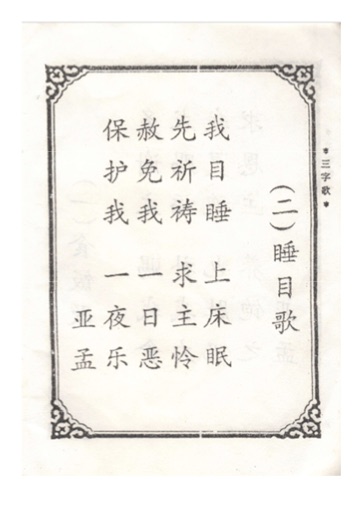 *三字歌*
（二）睡目歌
我目睡 上床眠
先祈祷 求主怜
赦免我 一日恶
保护我 一夜乐
亚孟